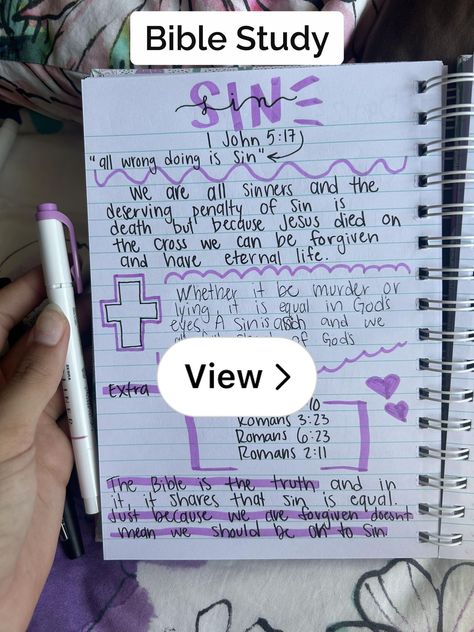 Bible Study
SIN
sin
1 John 5:17
"all wrong doing is Sin"
We are all sinners and the
deserving penalty of sin is
death but because Jesus died on
the cross we can be forgiven
and have eternal life.
Whether it be murder or
lying it is equal in God's
eyes. A Sin is a and we
of God's
View >
Extra
10
Romans 3:23
Romans 6:23
Romans 2:11
The Bible is the truth and in
it, it shares that sin is equal.
Just because we are forgiven doesnt
mean we should be on to sin.